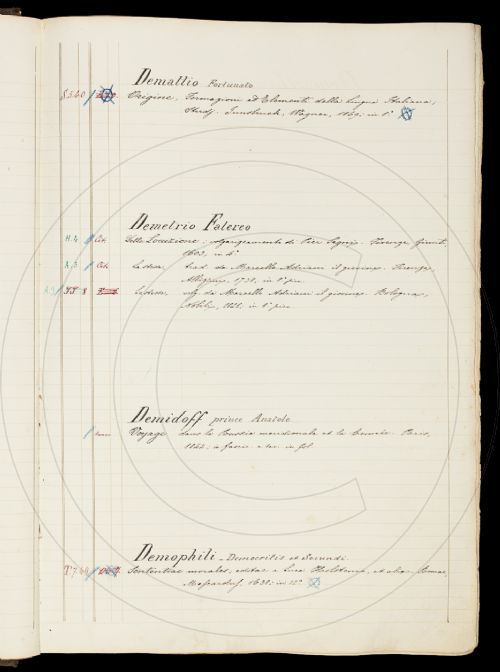 Demattio Fortunato
S.5.40 Origine, Formazione ed Elementi della lingua Italiana,
Studj. Innsbruck, Wagner, 1869: in 8°
Demetrio Falereo
H. 4 Cit. Della Locuzione: volgarizzamento di Pier Segni. Firenze, Giunti,
1603, in 4°
A. 3 Cit. La stessa, trad. da Marcello Adriani il giovine. Firenze,
1738, in 8°
8 La stessa, volg. da Marcello Adriani il giovine. Bologna,
Nobili, 1821. in 8°
Demidoff prince Anatole
Voyage dans la Russie méridionale et la Crimée. Paris,
1842: in fol.
Demophili - Democritis et Secundi.
T.7.60 Sententiae morales, editae a Luca Holstenio, et aliqu. Romae,
Mascardus, 1638: in 12°